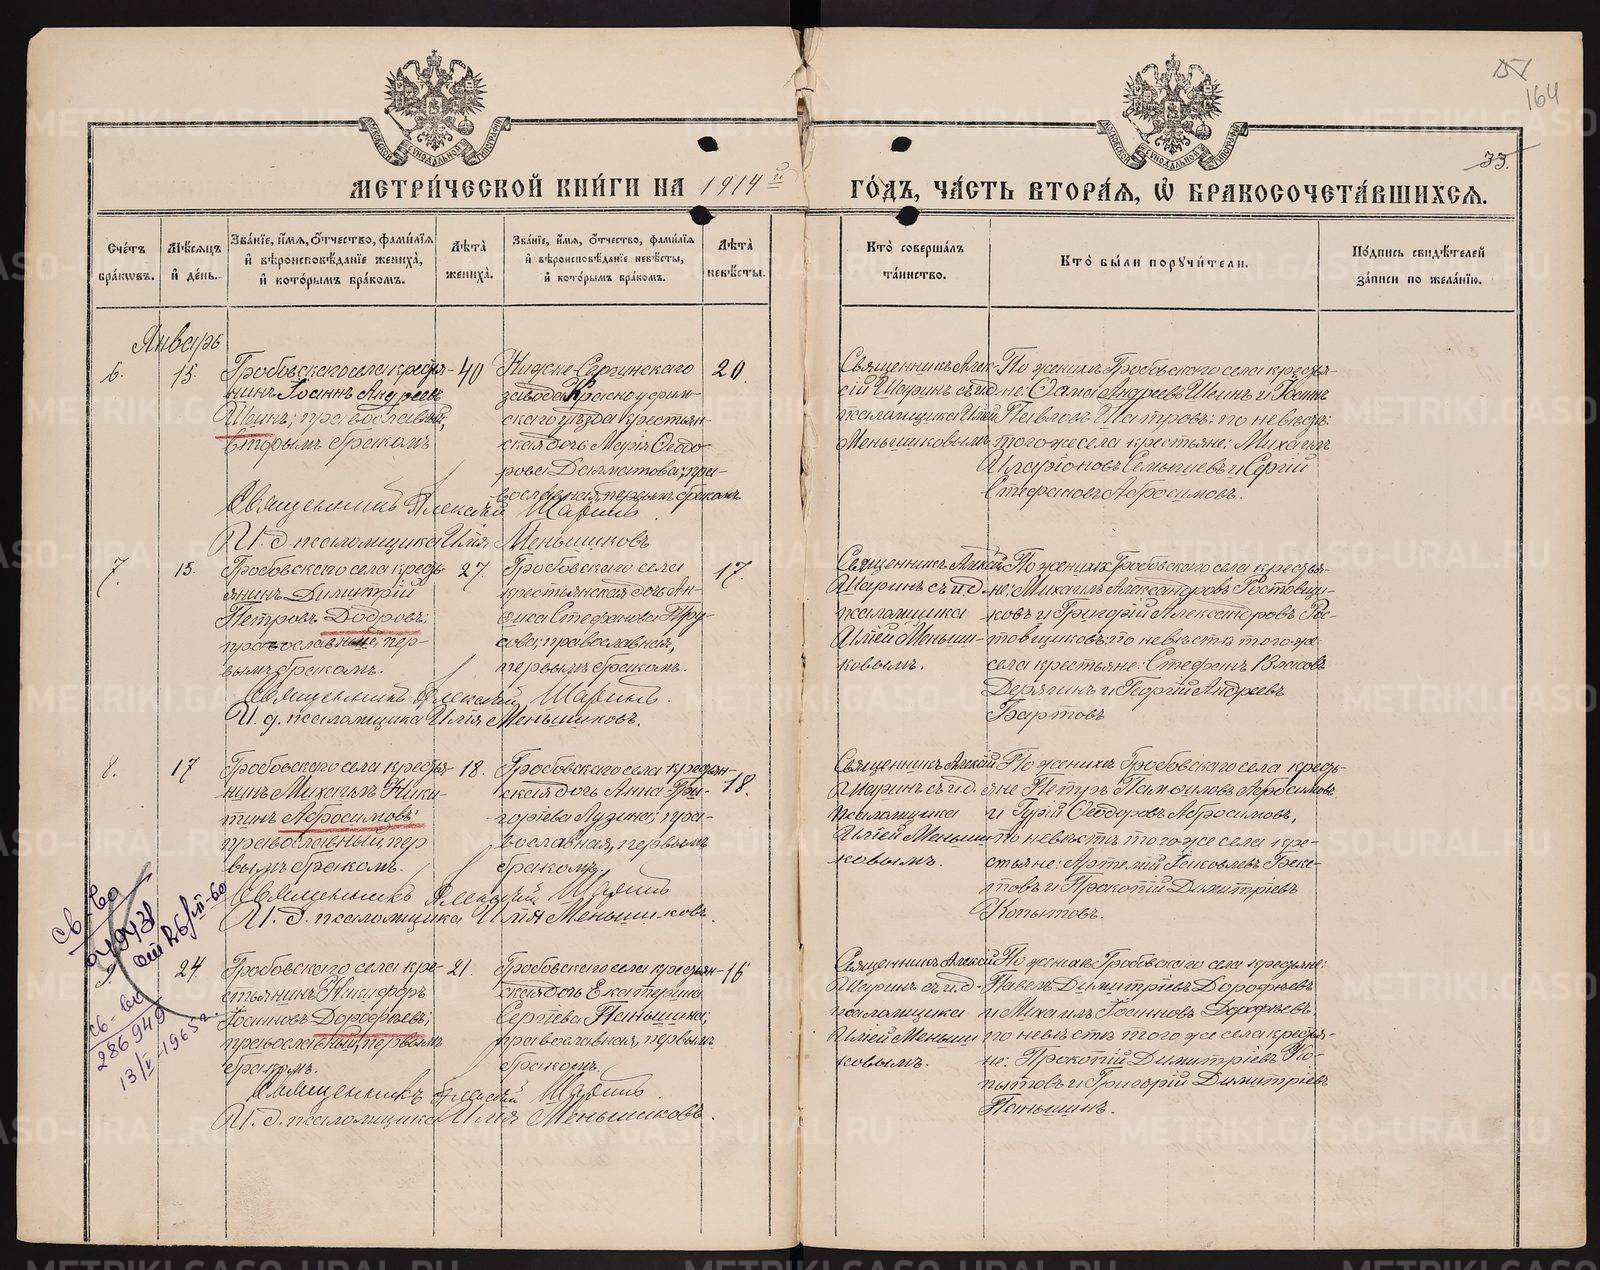 164
33.
МЕТРИЧЕСКОЙ КНИГИ НА 1914й
ГОДЪ, ЧАСТЬ ВТОРАЯ, Ѡ БРАКОСОЧЕТАВШИХСЯ.
Счетъ браковъ.
Мѣсяцъ и день.
Званіе, имя, отчество, фамилія
и вѣроисповѣданіе жениха,
и которымъ бракомъ.
Лѣта жениха.
Званіе, имя, отчество, фамилія
и вѣроисповѣданіе невѣсты,
и которымъ бракомъ.
Лѣта невѣсты.
Кто совершалъ
таинство.
Кто были поручители.
Подпись свидѣтелей
записи по желанію.
Январь
6.
15
Гробовскаго села крестья-
нинъ Іоаннъ Андреевъ
Шинъ; православный,
вторымъ бракомъ
40
Нижне-Сергинскаго
завода Красноуфим-
скаго уѣзда крестьян-
ская дочь Марія Ѳеодо-
рова православная, первымъ бракомъ
20
Священникъ Алек-
сій Шаринъ съ и.д.
псаломщика Иліей
Меньшиковымъ
По женихѣ Гробовскаго села крестья-
не: Андреевъ Шинъ и
Павловъ Патровъ; по невѣстѣ:
того же села крестьяне: Михаилъ
Иларіоновъ и Сергій
Стефановъ Абросимовъ.
Священникъ Алексій Шаринъ
И. д. псаломщика Илія Меньшиковъ
7.
15.
Гробовскаго села кресть-
янинъ Димитрій
Петровъ Додровъ;
православный, пер-
вымъ бракомъ.
27.
Гробовскаго села
крестьянская дочь Ан-
фиса Стефанова
православная,
первымъ бракомъ.
17.
Священникъ Алексій
Шаринъ съ и.д.
псаломщика
Иліей Меньши-
ковымъ.
По женихѣ Гробовскаго села крестья-
не: Михаилъ Александровъ Ростовщи-
ковъ и Григорій Александровъ Рос-
товщиковъ; по невѣстѣ того же
села крестьяне: Стефанъ Власовъ
Дерягинъ и Георгій Андреевъ
Бартовъ
Священникъ Алексій Шаринъ.
И. д. псаломщика Илія Меньшиковъ.
8.
17
Гробовскаго села крестья-
нинъ Михаилъ Ники-
тинъ Абросимовъ;
православный, пер
вымъ бракомъ.
18.
Гробовскаго села крестьян-
ская дочь Анна Гри-
горіева Лузина; пра-
вославная, первымъ
бракомъ.
18.
Священникъ Алексій
Шаринъ съ и.д.
псаломщика
Иліей Меньши
ковымъ.
По женихѣ Гробовскаго села кресть-
яне Петръ Памфиловъ Абросимовъ
и Гурій Ѳеодоровъ Абросимовъ,
по невѣстѣ того же села кре-
стьяне: Артемій Іаковлевъ Беке-
товъ и Прокопій Димитріевъ
Копытовъ.
Священникъ Алексій Шаринъ
И. д. псаломщика Илія Меньшиковъ.
св-во
св-во
286949
13/V-1965 г.
24
Гробовскаго села кре-
стьянинъ Никифоръ
Іоанновъ Дорофѣевъ;
православный, первымъ
бракомъ.
21.
Гробовскаго села крестьян-
ская дочь Екатерина
Сергѣева Паньшина;
православная, первымъ
бракомъ.
16
Священникъ Алексій
Шаринъ съ и.д.
псаломщика
Иліей Меньши
ковымъ.
По женихѣ Гробовскаго села крестьяне:
Павелъ Димитріевъ Дорофѣевъ
и Михаилъ Іоанновъ Дорофѣевъ.
по невѣстѣ того же села крестья-
не: Прокопій Димитріевъ Ко-
пытовъ и Григорій Димитріевъ
Паньшинъ.
Священникъ Алексій Шаринъ.
И. д. псаломщика Илія Меньшиковъ.
METRIKI.GASO-URAL.RU